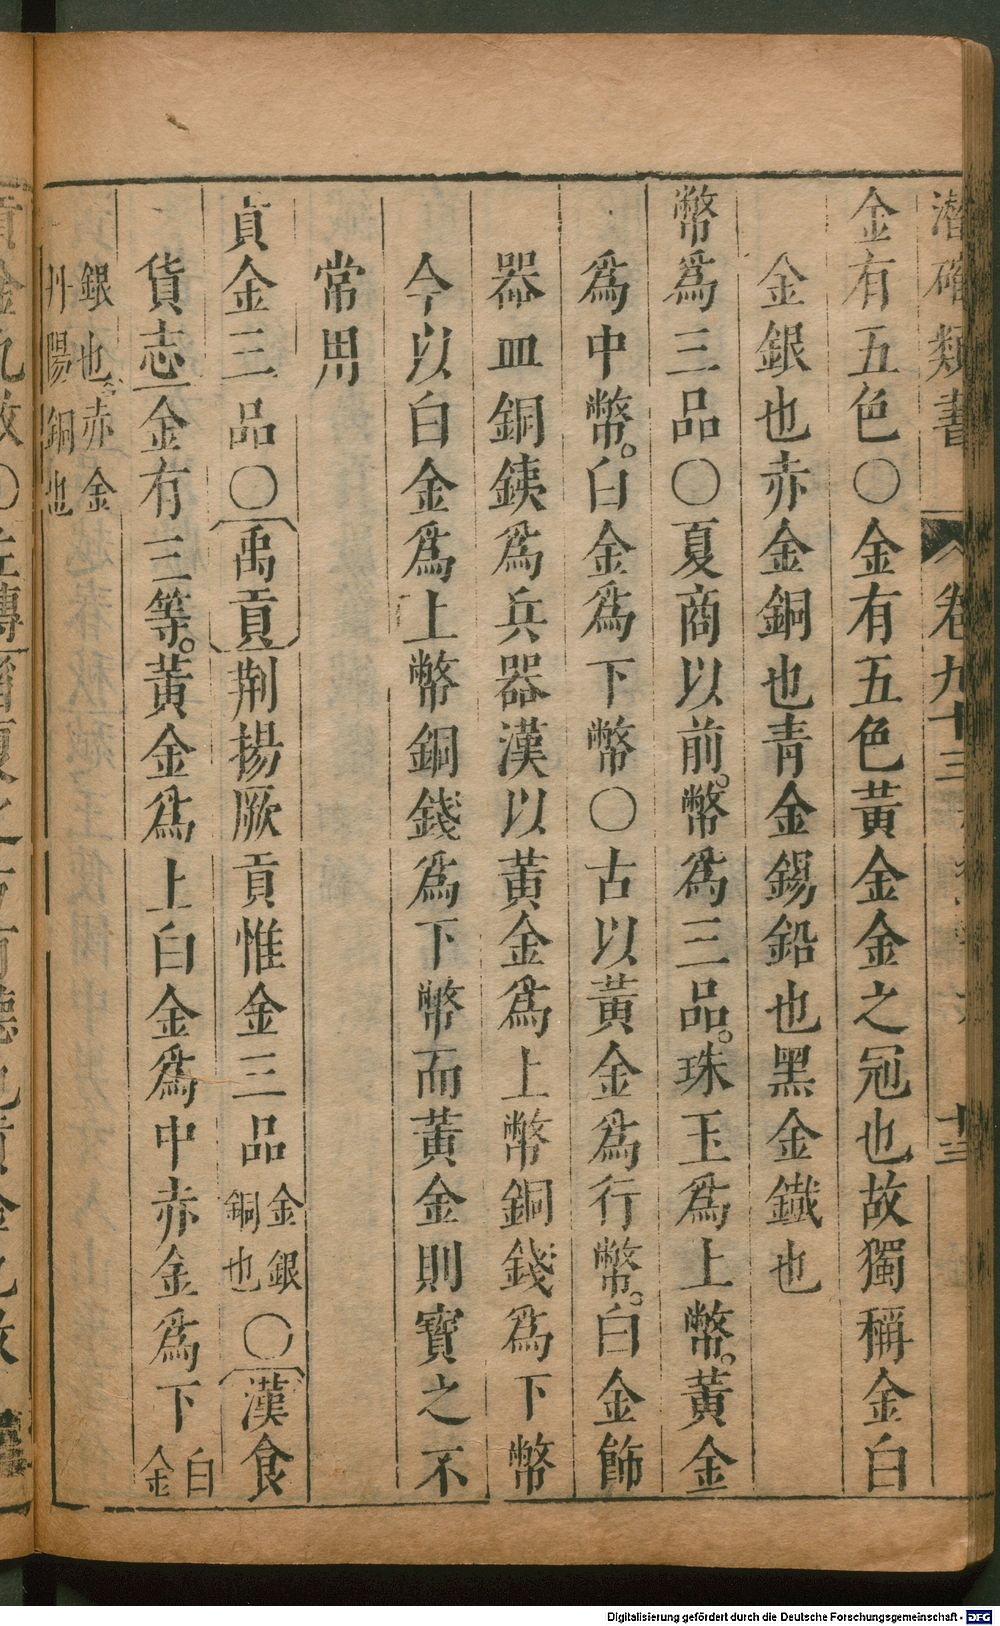 潛確類書 卷九十三 十三
金有五色○金有五色黃金金之冠也故獨稱金白
金銀也赤金銅也青金錫鉛也黑金鐵也
幣爲三品○夏商以前。幣爲三品。珠玉爲上幣。黃金
爲中幣。白金爲下幣○古以黃金爲行幣。白金飾
器皿銅銕爲兵器漢以黃金爲上幣銅錢爲下幣
今以白金爲上幣銅錢爲下幣而黃金則寶之不
常用
貢金三品○禹貢荆揚厥貢惟金三品金銀銅也○漢食
貨志金有三等。黃金爲上白金爲中赤金爲下白金
銀也赤金
丹陽銅也
Digitalisierung gefördert durch die Deutsche Forschungsgemeinschaft - DFG